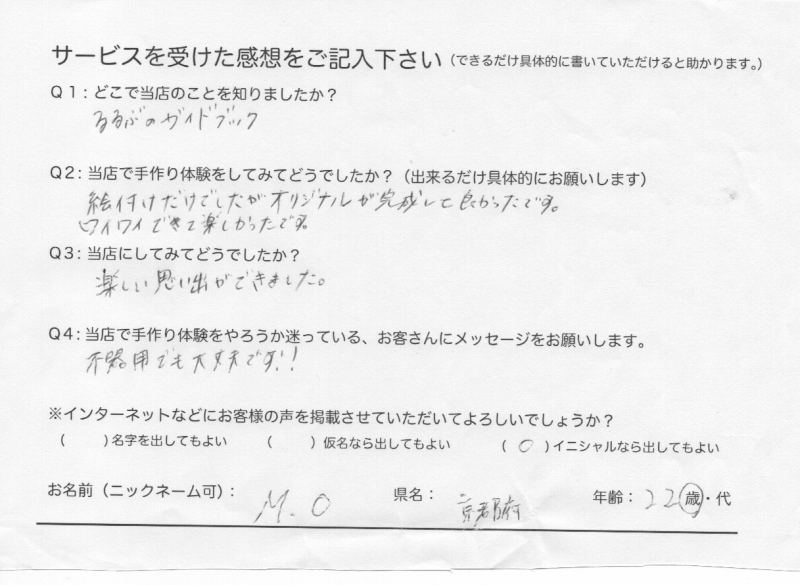 サービスを受けた感想をご記入下さい（できるだけ具体的に書いていただけると助かります。）
Q1：どこで当店のことを知りましたか？
るるぶのガイドブック
Q2：当店で手作り体験をしてみてどうでしたか？（出来るだけ具体的にお願いします）
絵付けだけでしたがオリジナルが完成して良かったです。
ワイワイできて楽しかったです。
Q3：当店にしてみてどうでしたか？
楽しい思い出ができました。
Q4：当店で手作り体験をやろうか迷っている、お客さんにメッセージをお願いします。
不器用でも大丈夫です！！
※インターネットなどにお客様の声を掲載させていただいてよろしいでしょうか？
（　　）名字を出してもよい　（　　）仮名なら出してもよい　（ ○ ）イニシャルなら出してもよい
お名前（ニックネーム可）： M.O　県名： 京都府　年齢： 22歳・代